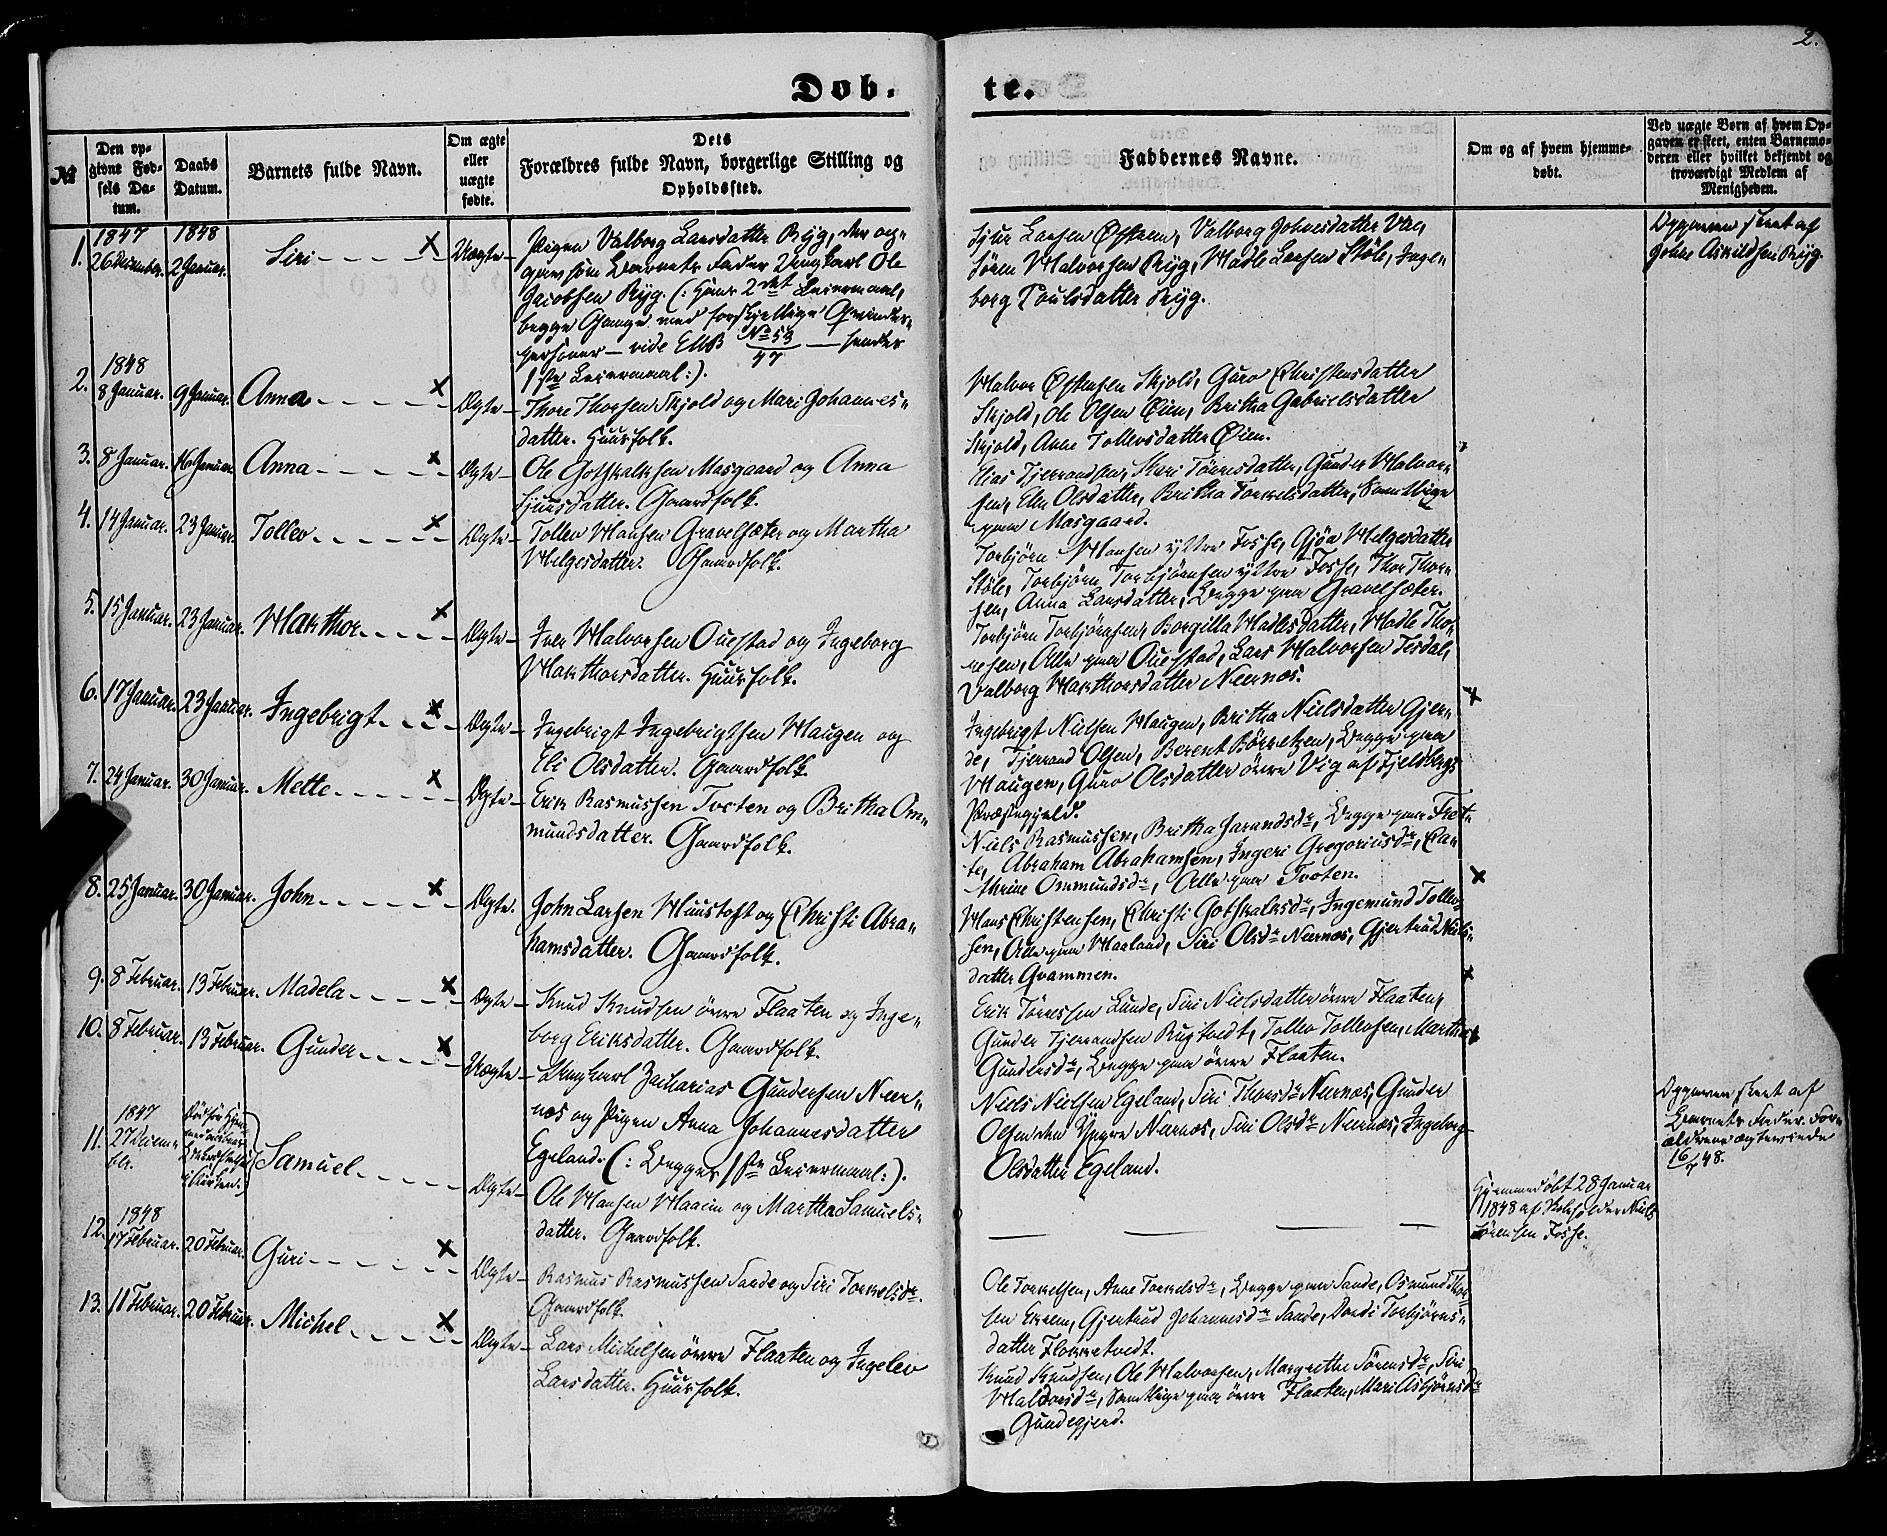 2.
Døb-
te.
№
Den op-
givne Fød-
sels Da-
tum.
Daabs
Datum.
Barnets fulde Navn.
Om ægte
eller
uægte
fødte.
Dets
Forældres fulde Navn, borgerlige Stilling og
Opholdssted.
Faddernes Navne.
Om og af hvem hjemme-
døbt.
Ved uægte Børn af hvem Op-
gaven er skeet, enten Barnemo-
deren eller hvilket bekjendt og
troværdigt Medlem af
Menigheden.
1.
1847
26 December.
1848
2 Januar.
Siri
Uægte
Pigen Valborg Larsdatter Ryg, der op-
gav som Barnets Fader Ungkarl Ole
Jacobsen Ryg. (: Hans 2det Leiermaal,
begge Gange med forskjellige Qvindes-
personer — vide
No 53
47
1ste Leiermaal:).
Sjur Larsen Østrem, Valborg Johnsdatter
Søren Halvorsen Ryg, Madle Larsen Støle, Inge-
borg Poulsdatter Ryg.
Opgaven skeet af
Johne Askildsen Ryg.
2.
1848
8 Januar.
9 Januar.
Anna
Ægte
Thore Thorsen Skjold og Mari Johannes-
datter. Huusfolk.
Halvor Østensen Skjold, Guro Christensdatter
Skjold, Ole Olsen Øien, Britha Gabrielsdatter
Skjold, Anne Tollevsdatter Øien.
3.
8 Januar.
16 Januar.
Anna
Ægte
Ole Gotskalksen Masgaard og Anna
Sjursdatter. Gaardfolk.
Elias Tjerrandsen, Skeri Tørresdatter, Gunder Halvor-
sen, Elen Olsdatter, Britha Torkelsdatter, Samtlige
paa Masgaard.
4.
14 Januar.
23 Januar.
Tollev
Ægte
Tollev Hansen Gravelsæter og Martha
Helgesdatter. Gaardfolk.
Torbjørn Hansen yttre Fosse, Gjøa Helgesdatter
Støle, Torbjørn Torbjørnsen yttre Fosse, Thor Thor-
sen, Anna Larsdatter, Begge paa Gravelsæter.
5.
15 Januar.
23 Januar.
Hakthor
Ægte
Iver Halvorsen Ouestad og Ingeborg
Hakthorsdatter. Huusfolk.
Torbjørn Torbjørnsen, Borgilla Hadlesdatter, Hadle Tho-
nesen, Alle paa Ouestad, Lars Halvorsen Tesdal,
Valborg Hakthorsdatter Neernæs.
6.
17 Januar.
23 Januar.
Ingebrigt
Ægte
Ingebrigt Ingebrigtsen Haugen og
Eli Olsdatter. Gaardfolk.
Ingebrigt Nielsen Haugen, Britha Nielsdatter Gjer-
de, Tjerrand Olsen, Berent Børretzen, Begge paa
Haugen, Guro Olsdatter øvre Vig af Fjeldbergs
Præstegjeld.
7.
24 Januar.
30 Januar.
Mette
Ægte
Erik Rasmussen Tveten og Britha Om-
mundsdatter. Gaardfolk.
Niels Rasmussen, Britha Sarandsdr, Begge paa Fret-
te, Abraham Abrahamsen, Ingeri Gregoriusdr, Ca-
thrine Ommundsdr, Alle paa Tveten.
8.
25 Januar.
30 Januar.
John
Ægte.
John Larsen Huustoft og Christi Abra-
hamsdatter. Gaardfolk.
Hans Christensen, Christi Gotskalksdr, Ingemund Tollev-
sen, Alle paa Haaland, Siri Olsdr Neernæs, Gjertrud Niels-
datter Qvammen.
9.
8 Februar.
13 Februar.
Madela
Ægte
Knud Knudsen øvre Flaaten og Inge-
borg Eriksdatter. Gaardfolk.
Erik Tørressen Lunde, Siri Nielsdatter øvre Flaaten,
Gunder Tjerrandsen Rugtvedt, Tollev Tollevsen, Martha
Gundersdr, Begge paa øvre Flaaten.
10.
8 Februar.
13 Februar.
Gunder
Uægte
Ungkarl Zacharias Gundersen Neer-
næs og Pigen Anna Johannesdatter
Egeland. (: Begges 1ste Leiermaal:).
Niels Nielsen Egeland, Siri Thorsdr Neernæs, Gunder
Olsen den Yngre Neernæs, Siri Olsdr Neernæs, Ingeborg
Olsdatter Egeland.
Opgaven skeet af
Barnets Fader. For-
ældrene ægteviede
16/7 48.
11.
1847
27 Decem-
br.
Samuel
Ægte
Ole Hansen Haaeim og Martha Samuels-
datter. Gaardfolk.
Hjemmedøbt 28 Januar
1848 af Skoleholder Niels
Sørensen Fosse.
12.
1848
17 Februar.
20 Februar.
Guri
Ægte
Rasmus Rasmussen Sande og Siri Torkelsdr.
Gaardfolk.
Ole Torkelsen, Anne Torkelsdr, Begge paa Sande, Osmund Thor-
sen Ekrem, Gjertrud Johannesdr Sande, Dordi Torbjørns-
datter Flokketvedt.
13.
11 Februar.
20 Februar.
Michel
Ægte
Lars Michelsen øvre Flaaten og Ingelev
Larsdatter. Huusfolk.
Knud Knudsen, Ole Halvorsen, Margrethe Sørensdr, Siri
Halvorsdr, Samtlige paa øvre Flaaten, Mari Asbjørnsdr
Gundegjerd.